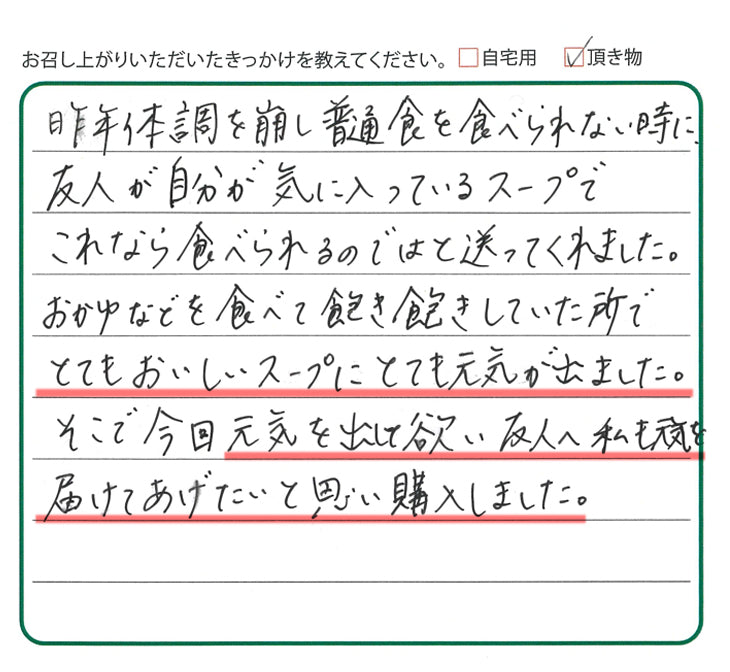 お召し上がりいただいたきっかけを教えてください。 □自宅用 ☑頂き物
昨年体調を崩し普通食を食べられない時に、
友人が自分が気に入っているスープで
これなら食べられるのではと送ってくれました。
おかゆなどを食べて飽き飽きしていた所で
とてもおいしいスープにとても元気が出ました。
そこで今回元気を出して欲い友人へ私も元気を
届けてあげたいと思い購入しました。